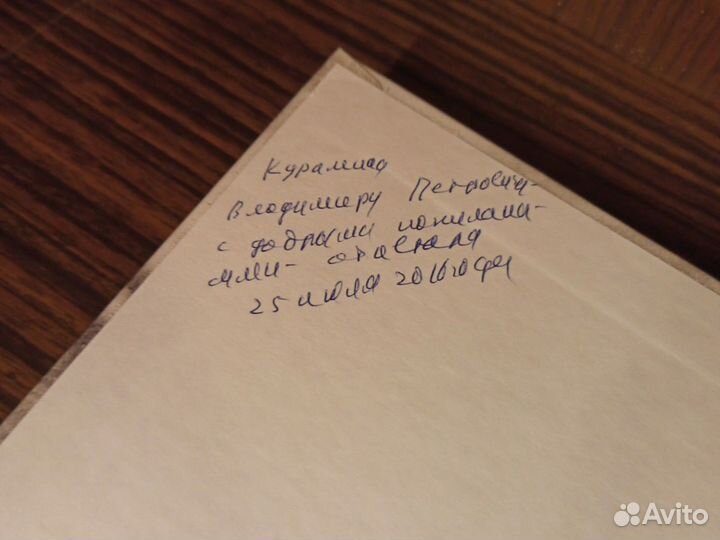 Владимиру Петровичу-
с добрыми пожелани-
ями- от автора
25 июля 2016 года
Avito